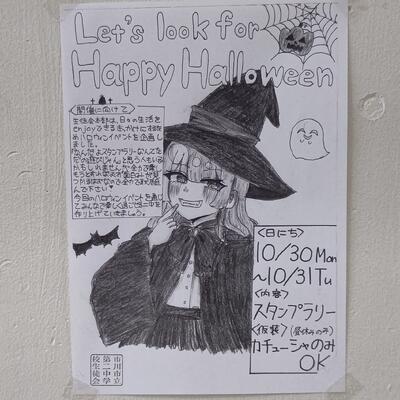 Let's look for
Happy Halloween
<開催に向けて>
生徒会本部は、日々の生活を
enjoyできる
ハロウィンイベントを企画し
ました。
なんだよスタンプラリーなんてた
だの
下さい♥
今回のハロウィンイベントを通じ
てみんなで楽しく過ごせる二中を
作り上げていきましょう。
<日にち>
10/30 Mon
~10/31 Tu
<内容>
スタンプラリー
<仮装>(昼休みのみ)
カチューシャのみ
OK
市川市立
第二中学
校生徒会